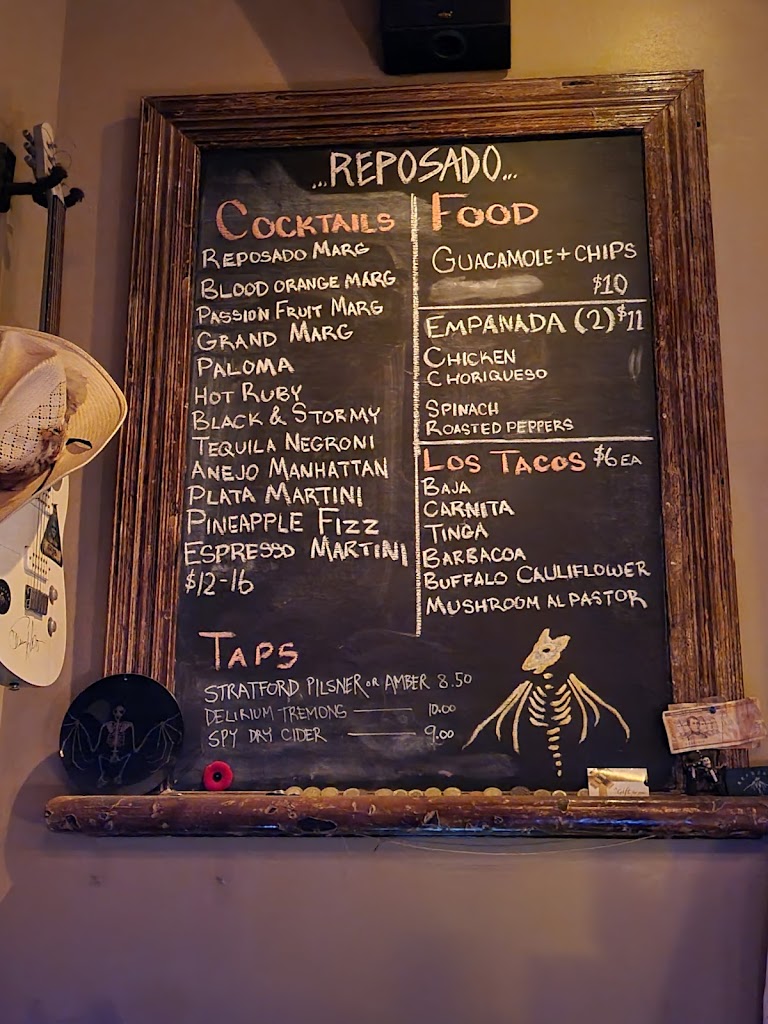 ...REPOSADO...
COCKTAILS
REPOSADO MARG
BLOOD ORANGE MARG
PASSION FRUIT MARG
GRAND MARG
PALOMA
HOT RUBY
BLACK & STORMY
TEQUILA NEGRONI
ANEJO MANHATTAN
PLATA MARTINI
PINEAPPLE FIZZ
ESPRESSO MARTINI
$12-16
FOOD
GUACAMOLE + CHIPS
$10
EMPANADA (2) $11
CHICKEN
CHORIQUESO
SPINACH
ROASTED PEPPERS
LOS TACOS $6 EA
BAJA
CARNITA
TINGA
BARBACOA
BUFFALO CAULIFLOWER
MUSHROOM AL PASTOR
TAPS
STRATFORD PILSNER OR AMBER 8.50
DELIRIUM TREMONS 10.00
SPY DRY CIDER 9.00